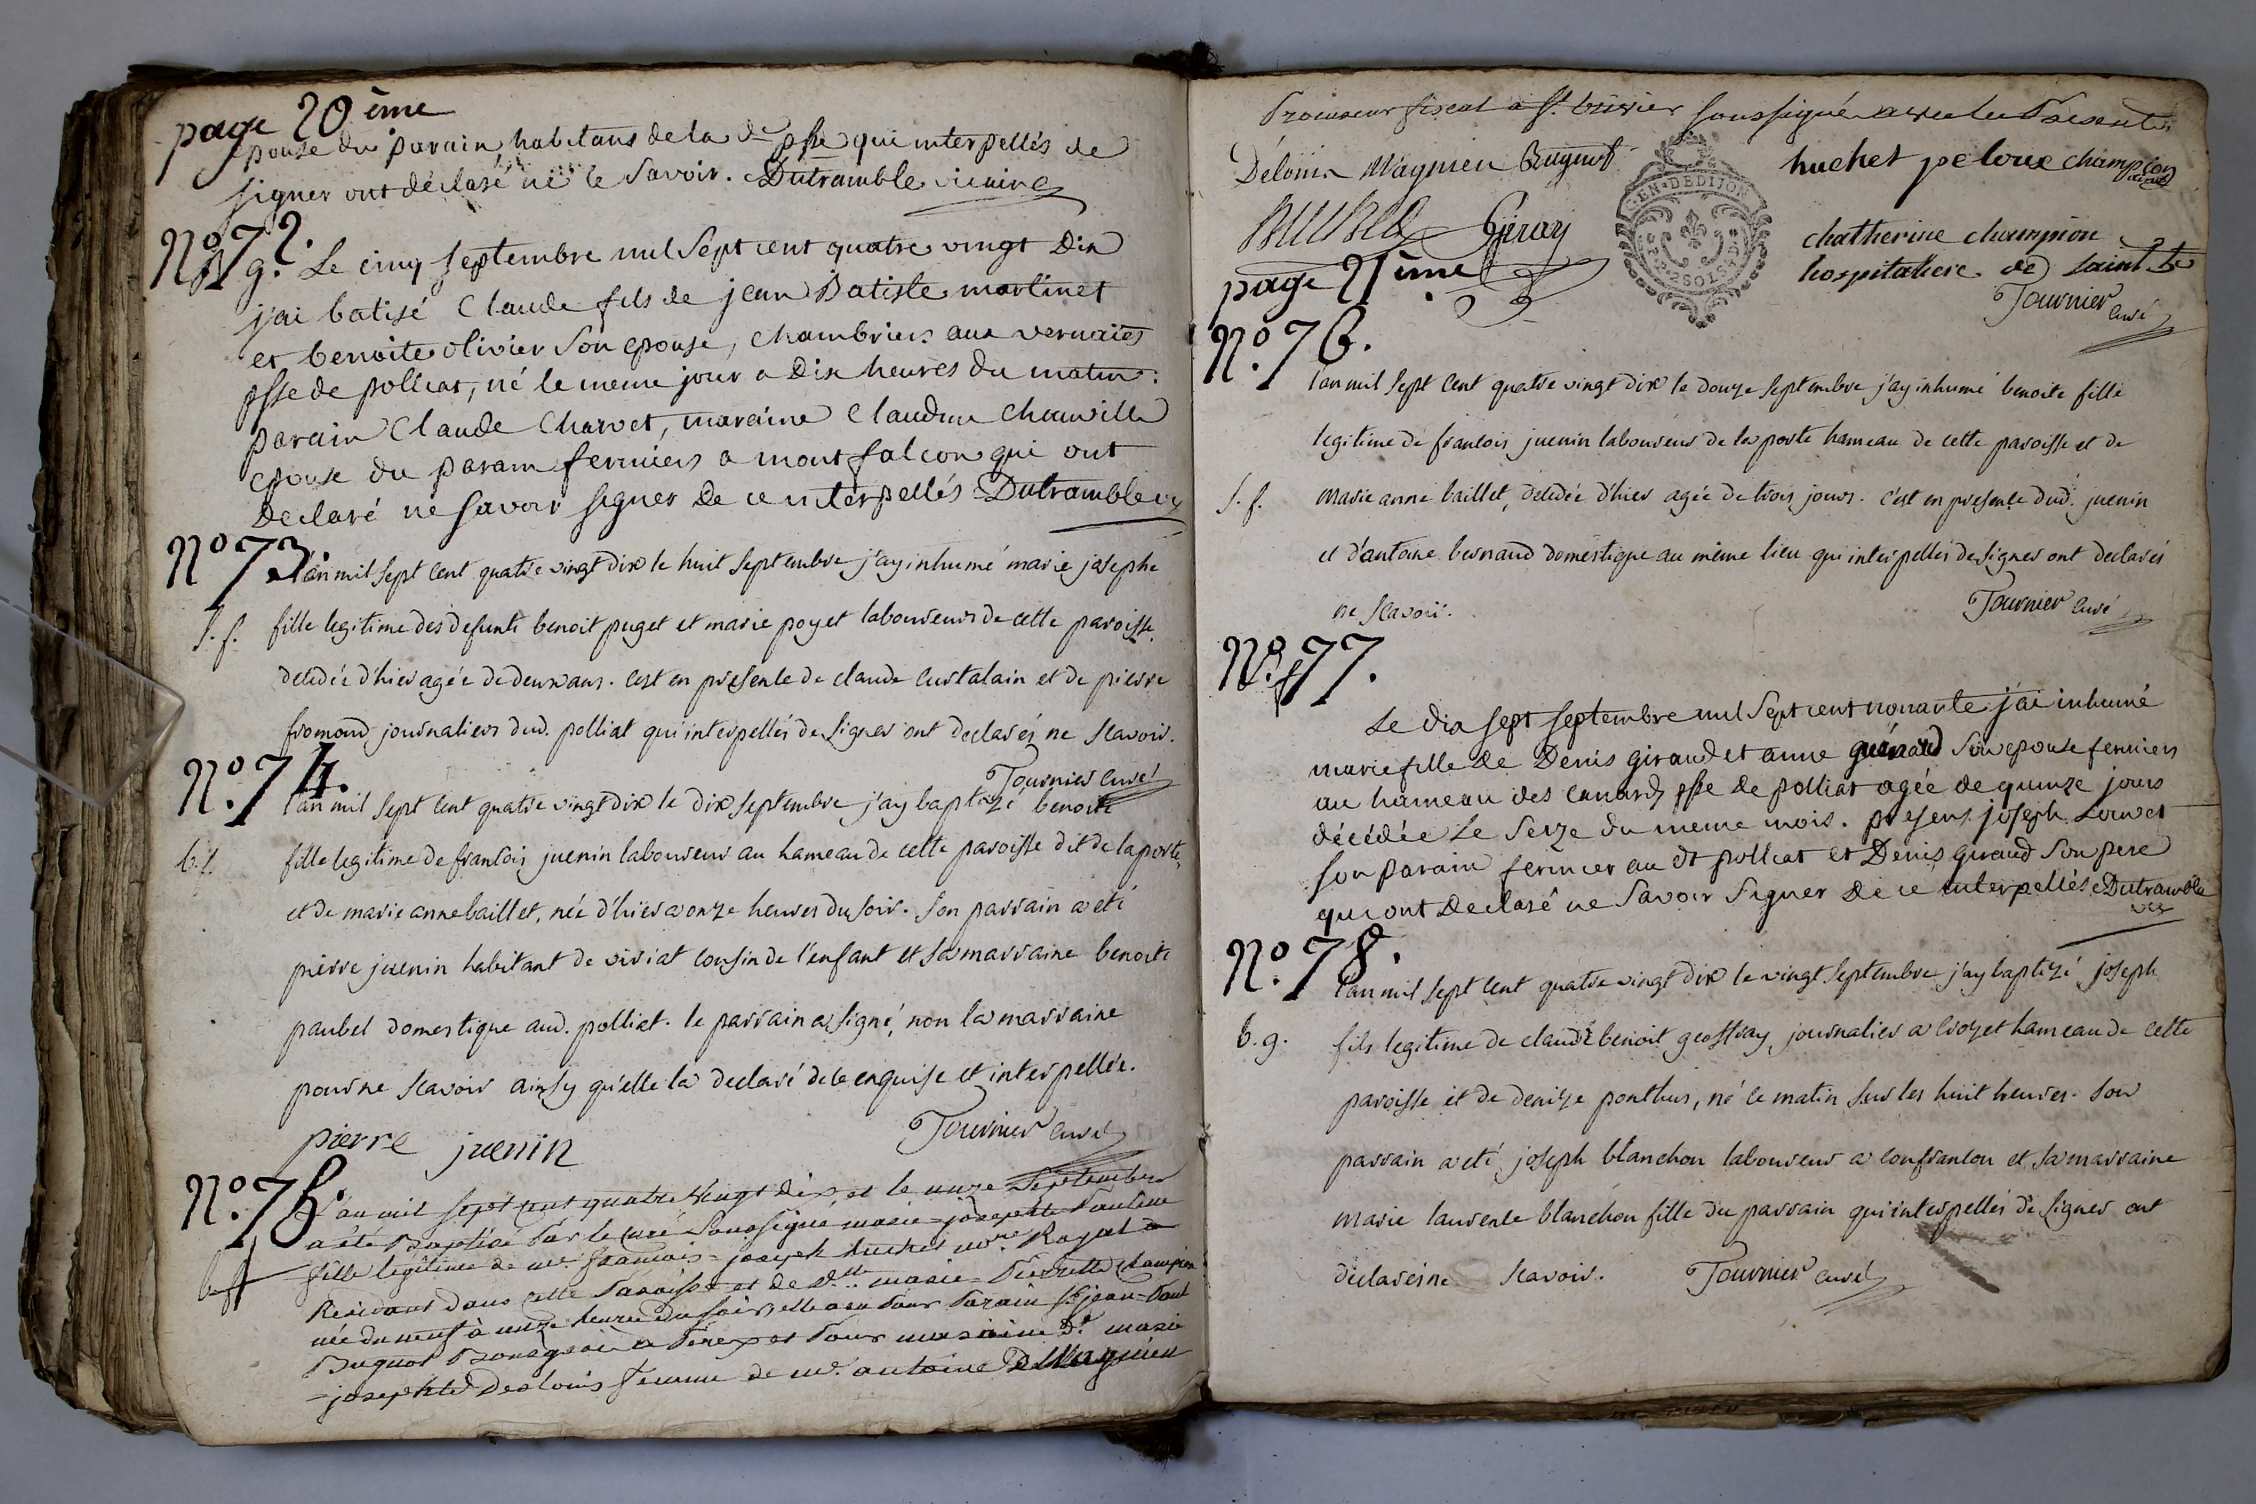 page 20ème
epouse du parain habitans de la dt psse qui interpellés de
signer ont déclaré ne le savoir. Dutramble vicaire
No 72.
b. g. Le cinq septembre mil sept cent quatre vingt dix
j'ai batisé Claude fils de jean Batiste martinet
et benoite olivier son epouse, chambriers aux vernaies
psse de polliat, né le meme jour a dix heures du matin.
parain Claude Charvet, maraine Claudine Chanvilla
epouse du parain fermiers a montfalcon qui ont
declaré ne savoir signer de ce interpellés Dutramble
No 73.
l'an mil sept cent quatre vingt dix le huit septembre j'ay inhumé marie josephe
s. f. fille legitime des defunts benoit puget et marie poyet laboureurs de cette paroisse.
decedée d'hier agée de deux ans. c'est en presence de claude curtalain et de pierre
fromond journaliers dud. polliat qui interpellés de signer ont declarés ne scavoir.
Tournier curé
No. 74.
l'an mil sept cent quatre vingt dix le dix septembre j'ay baptizé benoite
b. f. fille legitime de francois juenin laboureur au hameau de cette paroisse dit de la porte,
et de marie anne baillet, née d'hier a onze heures du soir. son parrain a eté
pierre juenin habitant de viriat cousin de l'enfant et sa marraine benoite
paubel domestique aud. polliat. le parrain a signé, non la marraine
pour ne scavoir ainsy qu'elle la declaré de ce enquise et interpellée.
Tournier curé
pierre juenin
No. 75.
L'an mil sept cent quatre vingt dix, et le onze septembre
a été Baptisée par le curé soussigné marie josephte pauline
bf fille legitime de mr. françois-joseph huchet nore. Royal
Residant dans cette paroisse et de dlle marie-pierrette champion
née du neuf à onze heures du soir, elle a eu pour parain sr jean-paul
Bugnot Bourgeois a et pour maraine de marie
-josephte Deslouis femme de mr. antoine Wagnien
procureur fiscal a st. trivier soussignés avec les présents.
Délouis Wagnien Bugnot huchet peloux champion
Géray
chatherine champion
hospitaliere de saint
Tournier curé
G. EN. DE DIJON
page 21ème
No. 76.
l'an mil sept cent quatre vingt dix le douze septembre j'ay inhumé benoite fille
legitime de francois juenin laboureur de la porte hameau de cette paroisse et de
s. f. Marie anne baillet, decedée d'hier agée de trois jours. c'est en presence dud. juenin
et d'antoine bernand domestique au même lieu qui interpellés de signer ont declarés
ne scavoir. Tournier curé
No. 77.
s. f.
Le dix sept septembre mil sept cent nonante j'ai inhumé
marie fille de Denis giraud et anne guénard son epouse fermiers
au hameau des canards psse de polliat agée de quinze jours
décédée le seize du meme mois. presens joseph Louvet
son parain fermier au dt polliat et Denis giraud son pere
qui ont declaré ne savoir signer de ce interpellés Dutramble
vic
No. 78.
l'an mil sept cent quatre vingt dix le vingt septembre j'ay baptizé joseph
b. g. fils legitime de claude benoit geoffray, journalier a crozet hameau de cette
paroisse et de denize ponthus, né ce matin sur les huit heures. son
parrain a eté joseph blanchon laboureur a confrancon et sa marraine
marie laurence blanchon fille du parrain qui interpellés de signer ont
declarés ne scavoir. Tournier curé